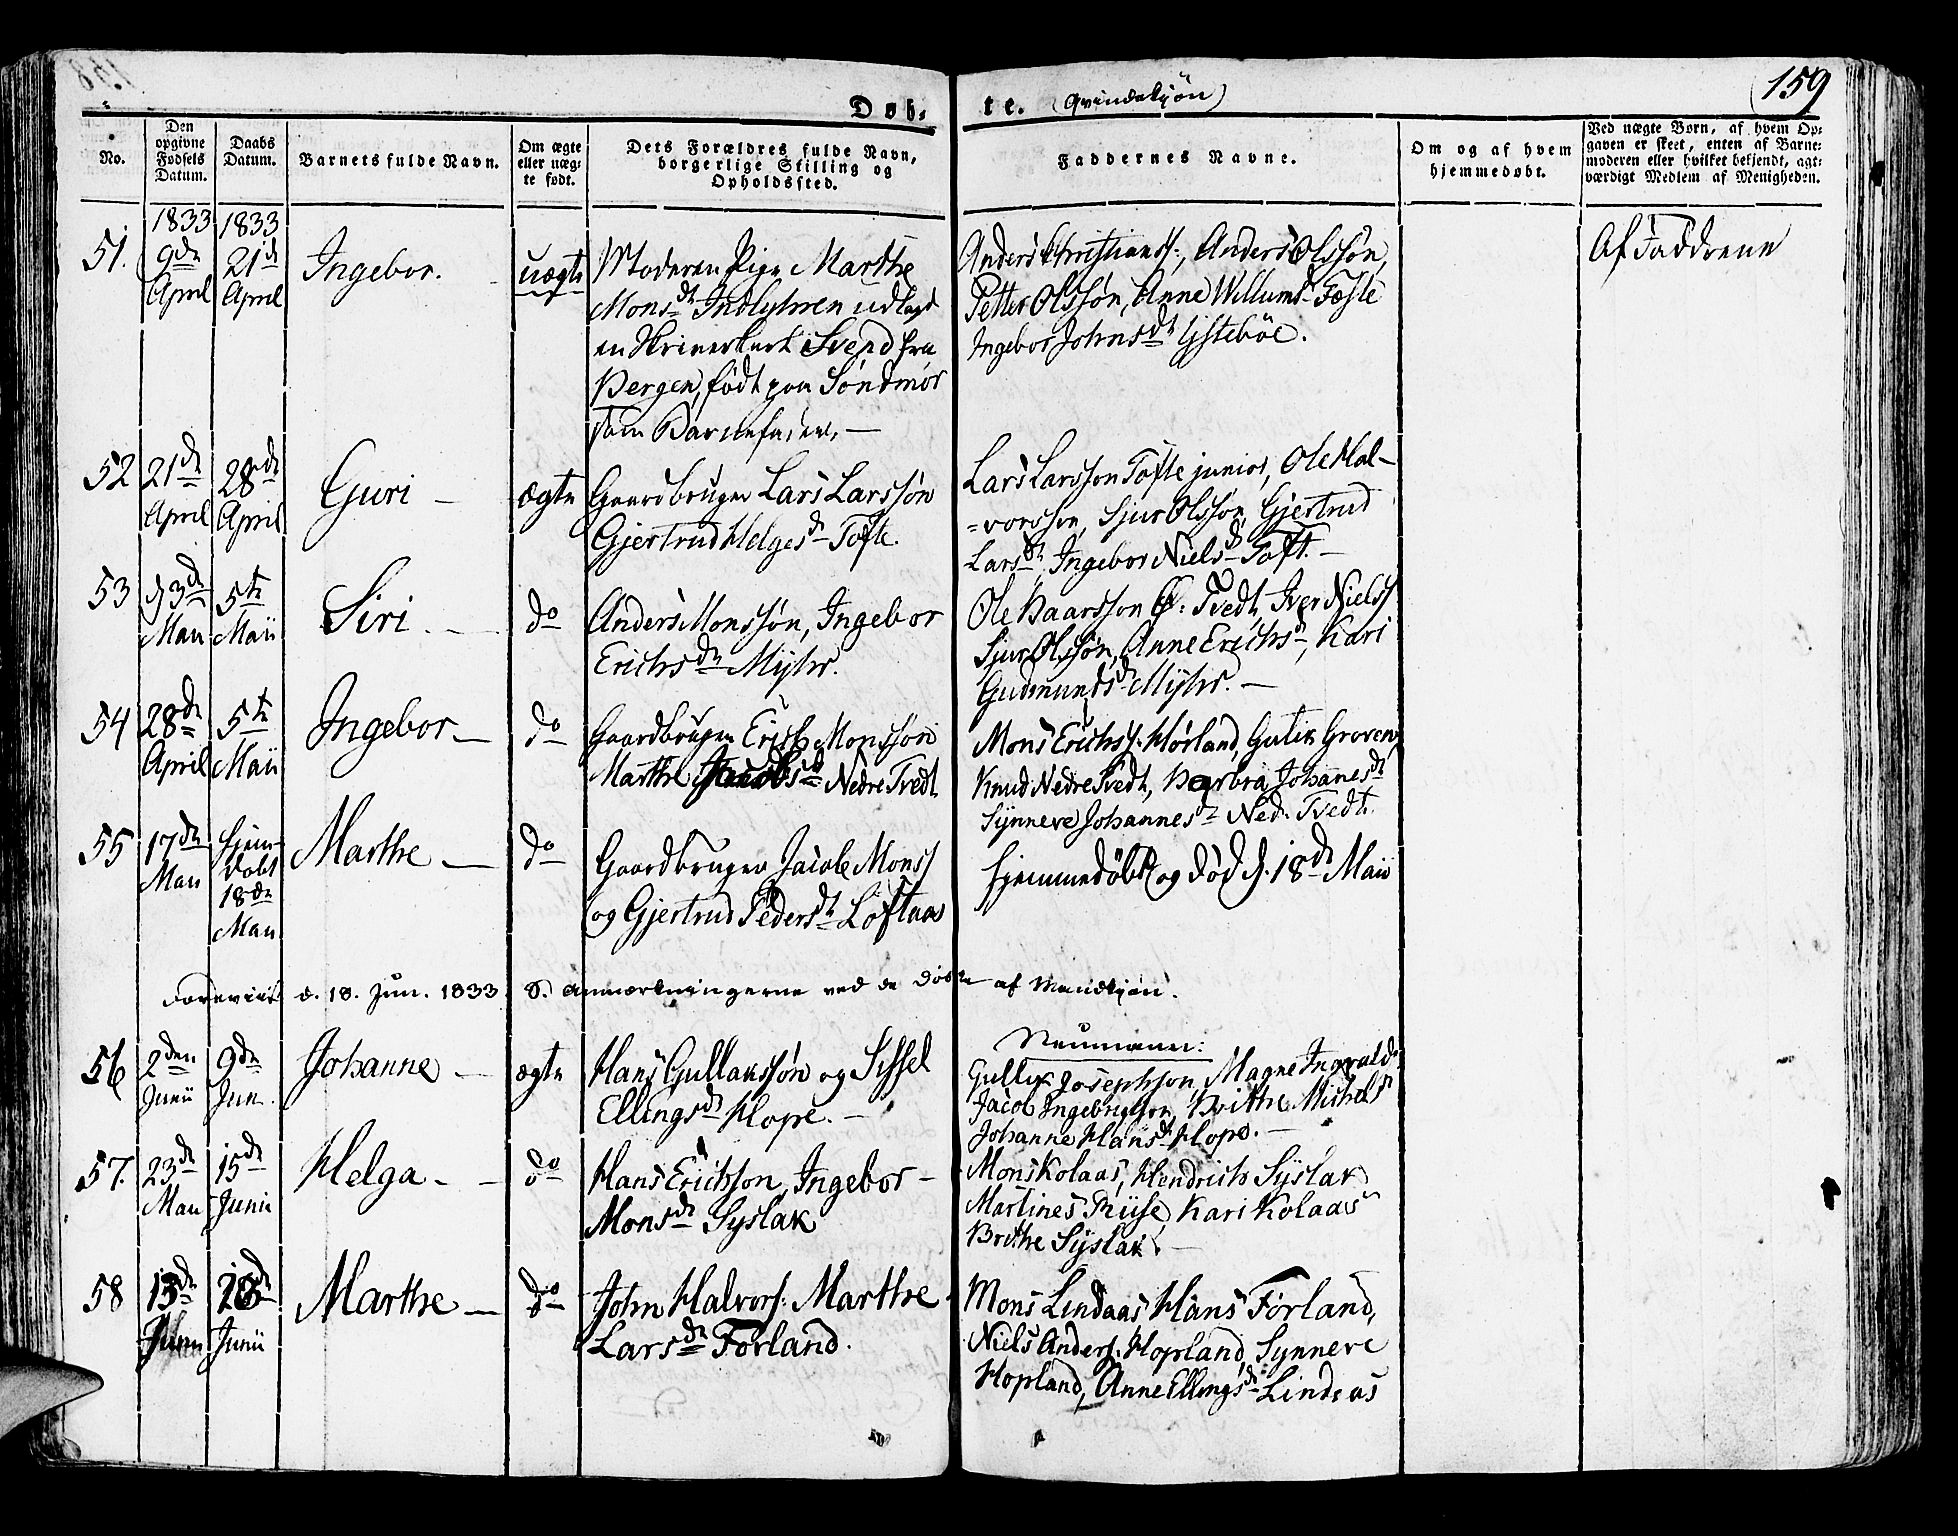 159
Døb- te. (Qvindekjøn)
No.
Den opgivne Fødsels Datum.
Daabs Datum.
Barnets fulde Navn.
Om ægte eller uæg- te født.
Dets Forældres fulde Navn, borgerlige Stilling og Opholdssted.
Faddernes Navne.
Om og af hvem hjemmedøbt.
Ved uægte Børn, af hvem Op- gaven er skeet, enten af Barne- moderen eller hvilket bekjendt, agt- værdigt Medlem af Menigheden.
51.
1833 9de April
1833 21de April
Ingebor.
uægte
Moderen Pige Marthe
Monsdr
udlagt
Svend fra
Bergen, født paa Søndmør
som Barnefader. —
Anders Christianss:, Anders Olssøn,
Petter Olssøn, Anne Willumsd Tofte
Ingebor Johnsdr
Af Fadderne
52
21de April
28de April
Guri —
ægte
Gaardbruger Lars Larssøn
Gjertrud Helgesd Tofte.
Lars Larsson Tofte junior, Ole Hal-
=vorsson, Sjur Olssøn, Gjertrud
Larsdr, Ingebor Nielsd Toft. —
53
d 3de Maii
5te Maii
Siri. —
do
Anders Monssøn, Ingebor
Erichsdr Myhr.
Ole Baarsson Ø: Tvedt, Iver Nielss
Sjur Olssøn, Anne Erichsd, Kari
Gudmundsd Myhr. —
54
28de April
5te Maii
Ingebor —
do
Gaardbruger Erich Monssøn
Marthe Jacobsd Nedre Tvedt
Mons Erichs: Hørland, Gutik Groven,
Knud Nedre Tvedt, Barbra Johanesdr
Synneve Johannesdr Ned. Tvedt.
55
17de Maii
Hjem- døbt 18de Maii
Marthe —
do
Gaardbruger Jacob Monss
og Gjertrud Pedersdr Løftaas
Hjemmedøbt og død d. 18de Maii
Foreviist d. 18. Jun. 1833. S. Anmærkningerne ved de Døbte af Mandkjøn.
Neumann.
56
2den Junii
9de Jun.
Johanne —
ægte
Hans Gullakssøn og Sissel
Ellingsdr Hope. —
Gullik Josephson, Magne Ingvald-
Jacob Ingebrigtson, Brithe Michelsdr
Johanne Hansdr Hope. —
57.
23de Maii
15de Junii
Helga —
do
Hans Erichson, Ingebor —
Monsdr Syslak
Mons Kolaas, Hendrich Syslak
Martines Kari Kolaas
Brithe Syslak. —
58
13de Junii
Junii
Marthe —
do
John Halvors: Marthe
Larsdr Førland.
Mons Lindaas Hans Førland,
Niels Anders: Hopland, Synneve
Hopland, Anne Ellingsdr Lindaas